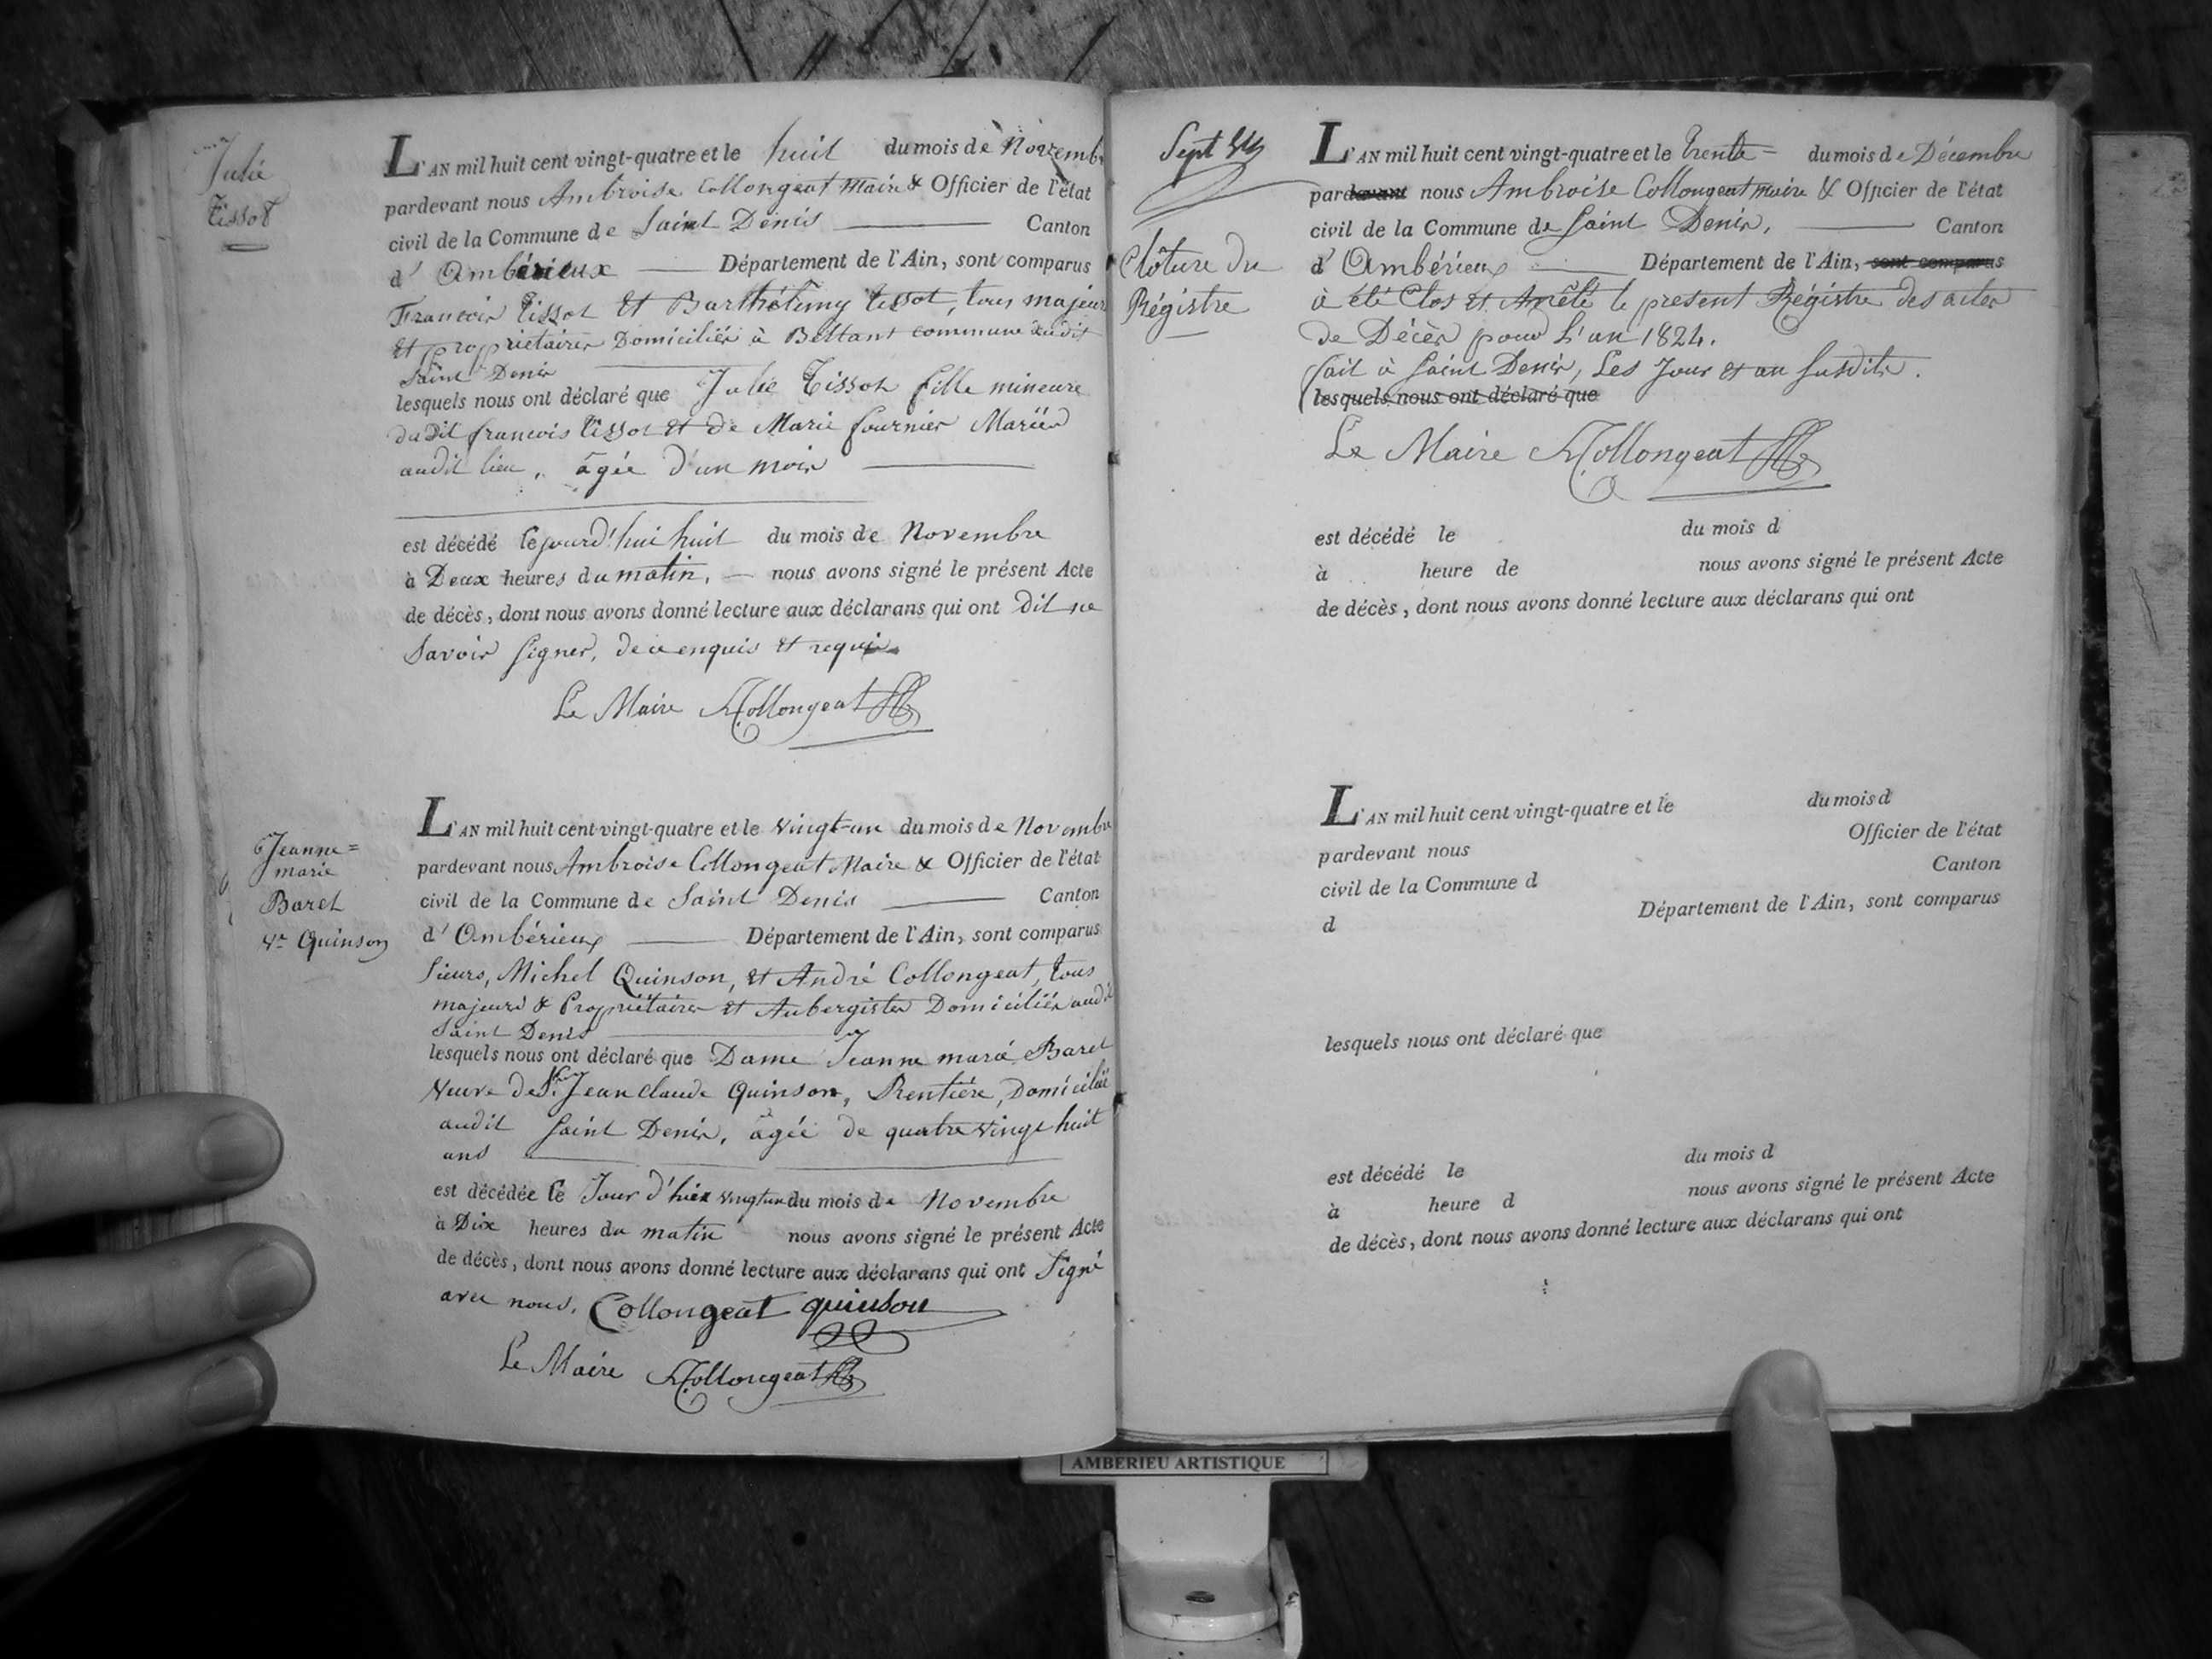 Julie
Tissot
L'AN mil huit cent vingt-quatre et le huit du mois de Novembre
pardevant nous Ambroise Collongeat Maire & Officier de l'état
civil de la Commune de Saint Denis Canton
d'Ambérieux Département de l'Ain, sont comparus
Francois Tissot et Barthélemy Tissot, tous majeurs
et propriétaires Domiciliés à Bettant commune dudit
Saint Denis
lesquels nous ont déclaré que Julie Tissot fille mineure
dudit francois Tissot et de Marie fournier Mariés
audit lieu, âgée d'un mois
est décédé le jourd'hui huit du mois de Novembre
à Deux heures du matin, nous avons signé le présent Acte
de décès, dont nous avons donné lecture aux déclarans qui ont dit ne
Savoir signer, de ce enquis et requis
Le Maire Collongeat
Jeanne=
marie
Baret
Ve Quinson
L'AN mil huit cent vingt-quatre et le vingt-un du mois de Novembre
pardevant nous Ambroise Collongeat Maire & Officier de l'état
civil de la Commune de Saint Denis Canton
d'Ambérieux Département de l'Ain, sont comparus
Sieurs, Michel Quinson, et André Collongeat, tous
majeurs & Propriétaires et Aubergistes Domiciliés audit
Saint Denis
lesquels nous ont déclaré que Dame Jeanne marie Baret
Veuve de Sr. Jean Claude Quinson, Rentière, Domiciliée
audit Saint Denis, âgée de quatre vingt huit
ans
est décédée le Jour d'hier vingt un du mois de Novembre
à Dix heures du matin nous avons signé le présent Acte
de décès, dont nous avons donné lecture aux déclarans qui ont Signé
avec nous. Collongeat quinson
Le Maire Collongeat
Sept
Clôture du
Régistre
L'AN mil huit cent vingt-quatre et le trente du mois de Décembre
pardevant nous Ambroise Collongeat maire & Officier de l'état
civil de la Commune de Saint Denis, Canton
d'Ambérieux Département de l'Ain, sont comparus
à été Clos et Arrêté le present Régistre des actes
de Décès pour L'an 1824.
fait à Saint Denis, Les Jour et an susdits.
lesquels nous ont déclaré que
Le Maire Collongeat
est décédé le du mois d
à heure de nous avons signé le présent Acte
de décès, dont nous avons donné lecture aux déclarans qui ont
L'AN mil huit cent vingt-quatre et le du mois d
pardevant nous Officier de l'état
civil de la Commune d Canton
d Département de l'Ain, sont comparus
lesquels nous ont déclaré que
est décédé le du mois d
à heure d nous avons signé le présent Acte
de décès, dont nous avons donné lecture aux déclarans qui ont
AMBERIEU ARTISTIQUE